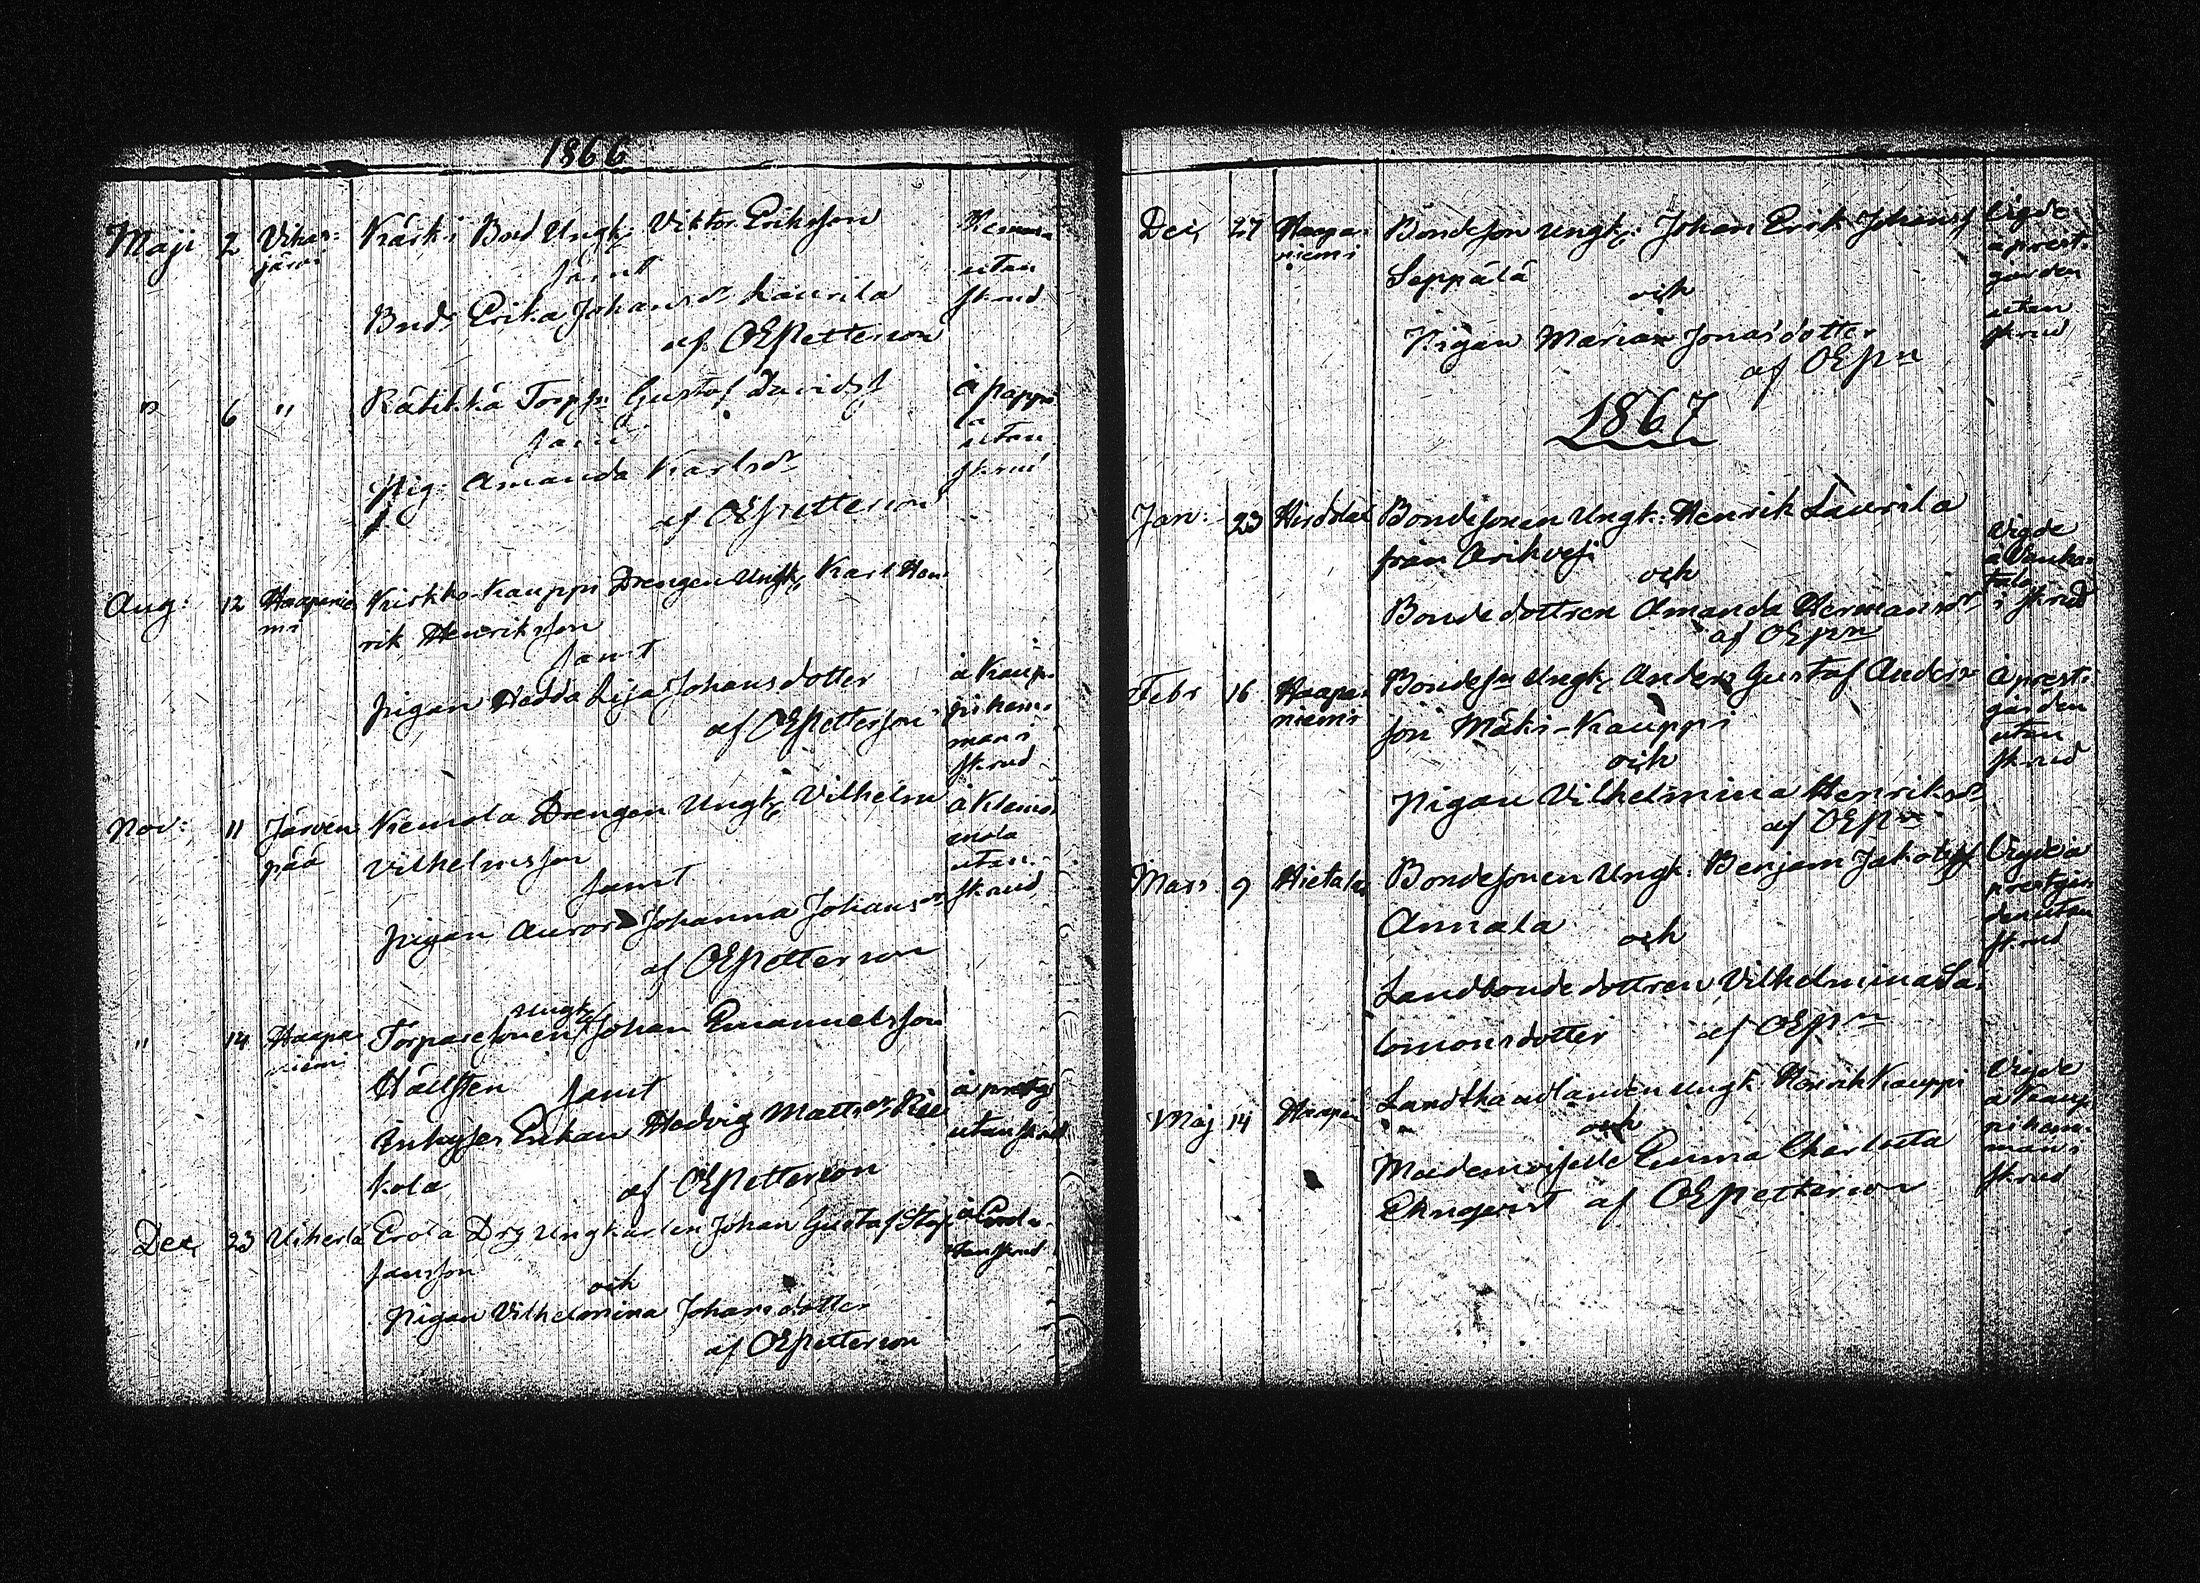 1866
Maji 2 Vihas-
järvi
Kärki Bnd Ungk: Viktor Eriksson
samt
Bnds Erika Johansdr Laurila
af OEPetterson
Hemma
utan
skrud
" 6 "
Torp: Gustaf Davids
samt
Pig: Amanda Karlsdr
af OEPetterson
å Pappi
la
utan
skrud
Aug: 12 Haapanie
mi
Kirkko-Kauppi Drengen Ungk: Karl Hen-
rik Henriksson
samt
pigan Hedda Lisa Johansdotter
af OEPetterson
å Kaup-
pi hem-
man i
skrud
Nov: 11 Järven
pää
Niemola Drengen Ungk: Vilhelm
Vilhelmsson
samt
pigan Aurora Johanna Johansdr
af OEPetterson
mola
utan
skrud
" 14 Haapa-
niemi
Ungk:
Torparesonen Johan Emanuelsson
Hällsten samt
Inhyses Enkan Hedvig Mattsdr
kola
af OEPetterson
å prstg:
utan skrud
Dec 23 Viherlä
Erola Drg Ungkarlen Johan Gustaf Staf-
fansson
och
Pigan Vilhelmina Johansdotter
af OEPetterson
å Erola
utan skrud
Dec 27 Haapa-
niemi
Bondeson ungk: Johan Erik Johanss
Seppälä
och
Pigan Maria Jonasdotter
af OEPn
Vigde
å prest-
gården
utan
skrud
1867
Jan: 23
Bondesonen Ungk: Henrik Laurila
från Arikvesi
och
Bondedottren Amanda Hermansdr
af OEPn
Vigde
å Vanha-
talo
i skrud
Febr 16 Haapa-
niemi
Bondesn Ungk: Anders Gustaf Anders
son Mäki-Kauppi
och
Pigan Vilhelmina Henriksdr
af OEPn
å prest-
gården
utan
skrud
Mars 9 Hietala
Bondesonen Ungk: Benjam Jakobss
Annala
och
Landbondedottren Vilhelmina Sa-
lomonsdotter af OEPn
Vigde å
prestgår-
den utan
skrud
Maj 14 Haapa
Landthandlanden ungk Henrik Kauppi
och
Mademoiselle Emma Charlotta
Eknqvist af OEPetterson
Vigde
å Kaup-
pi hem-
man i
skrud